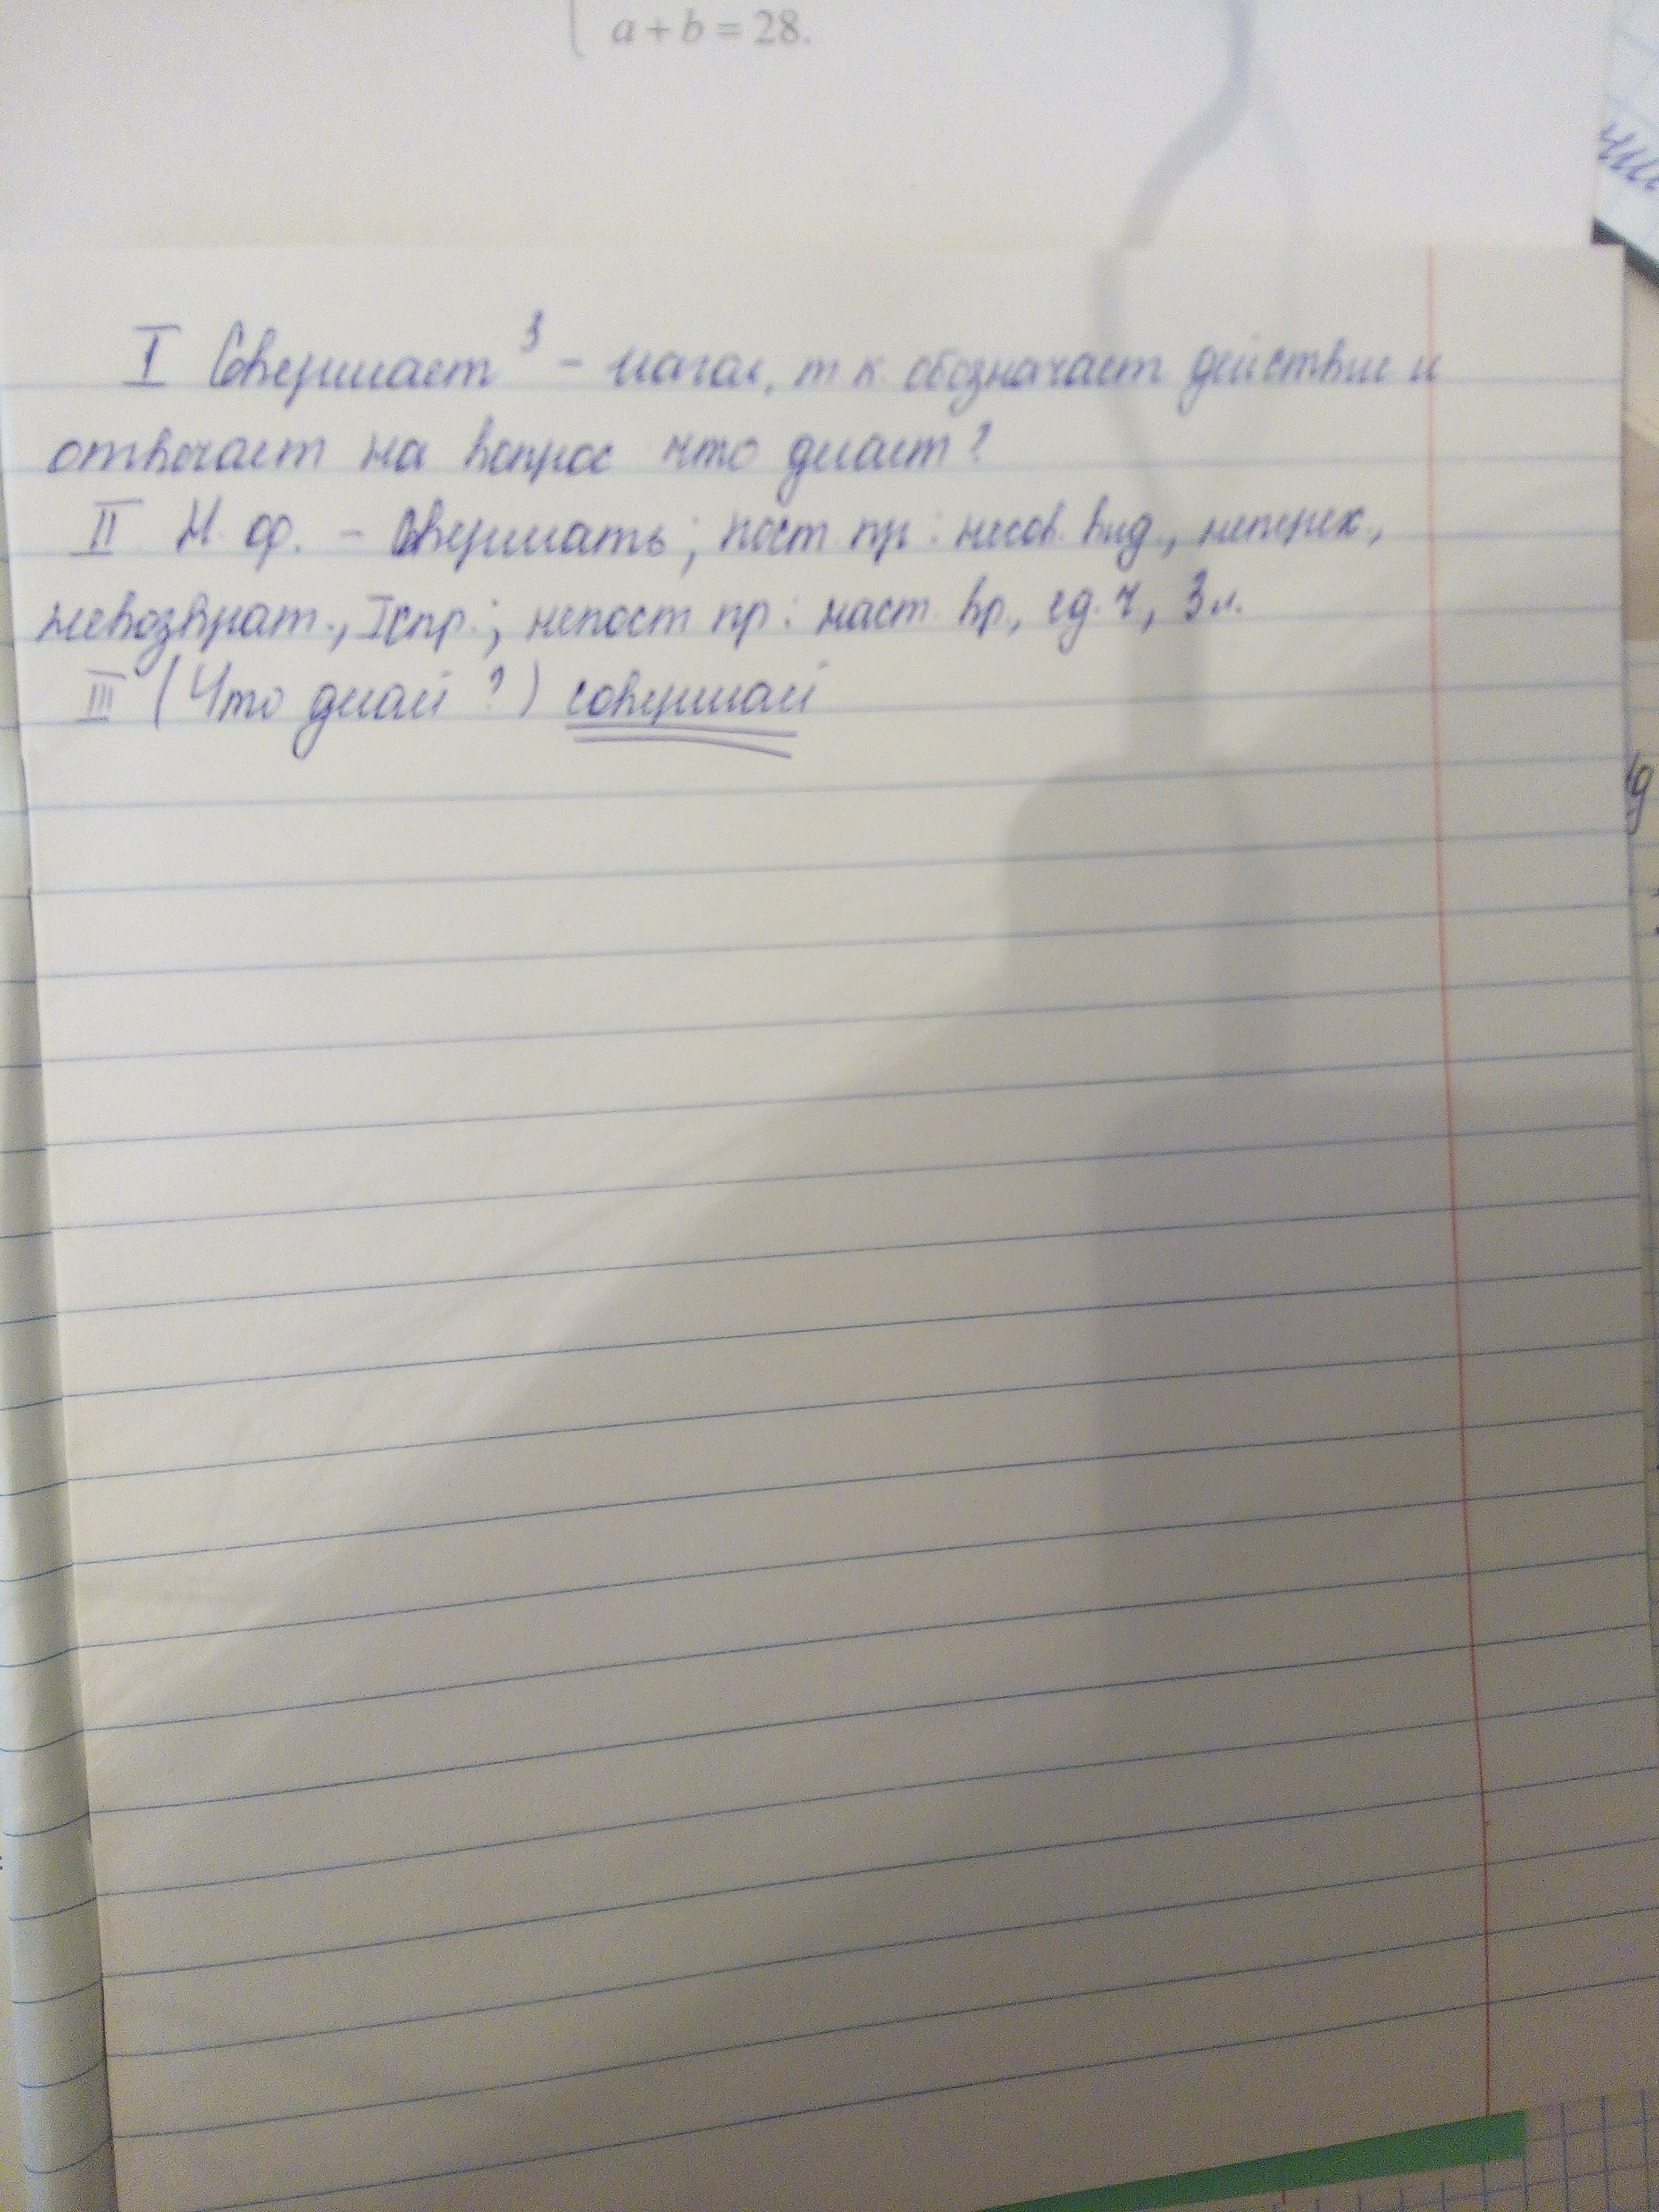 a + b = 28.
I Совершает³ - глагол, т к обозначает действие и
отвечает на вопрос что делает?
II Н. ф. - Совершать; пост пр: несов. вид, неперех.,
невозврат., I спр.; непост пр: наст. вр., ед. ч., 3 л.
III (Что делай?) совершай